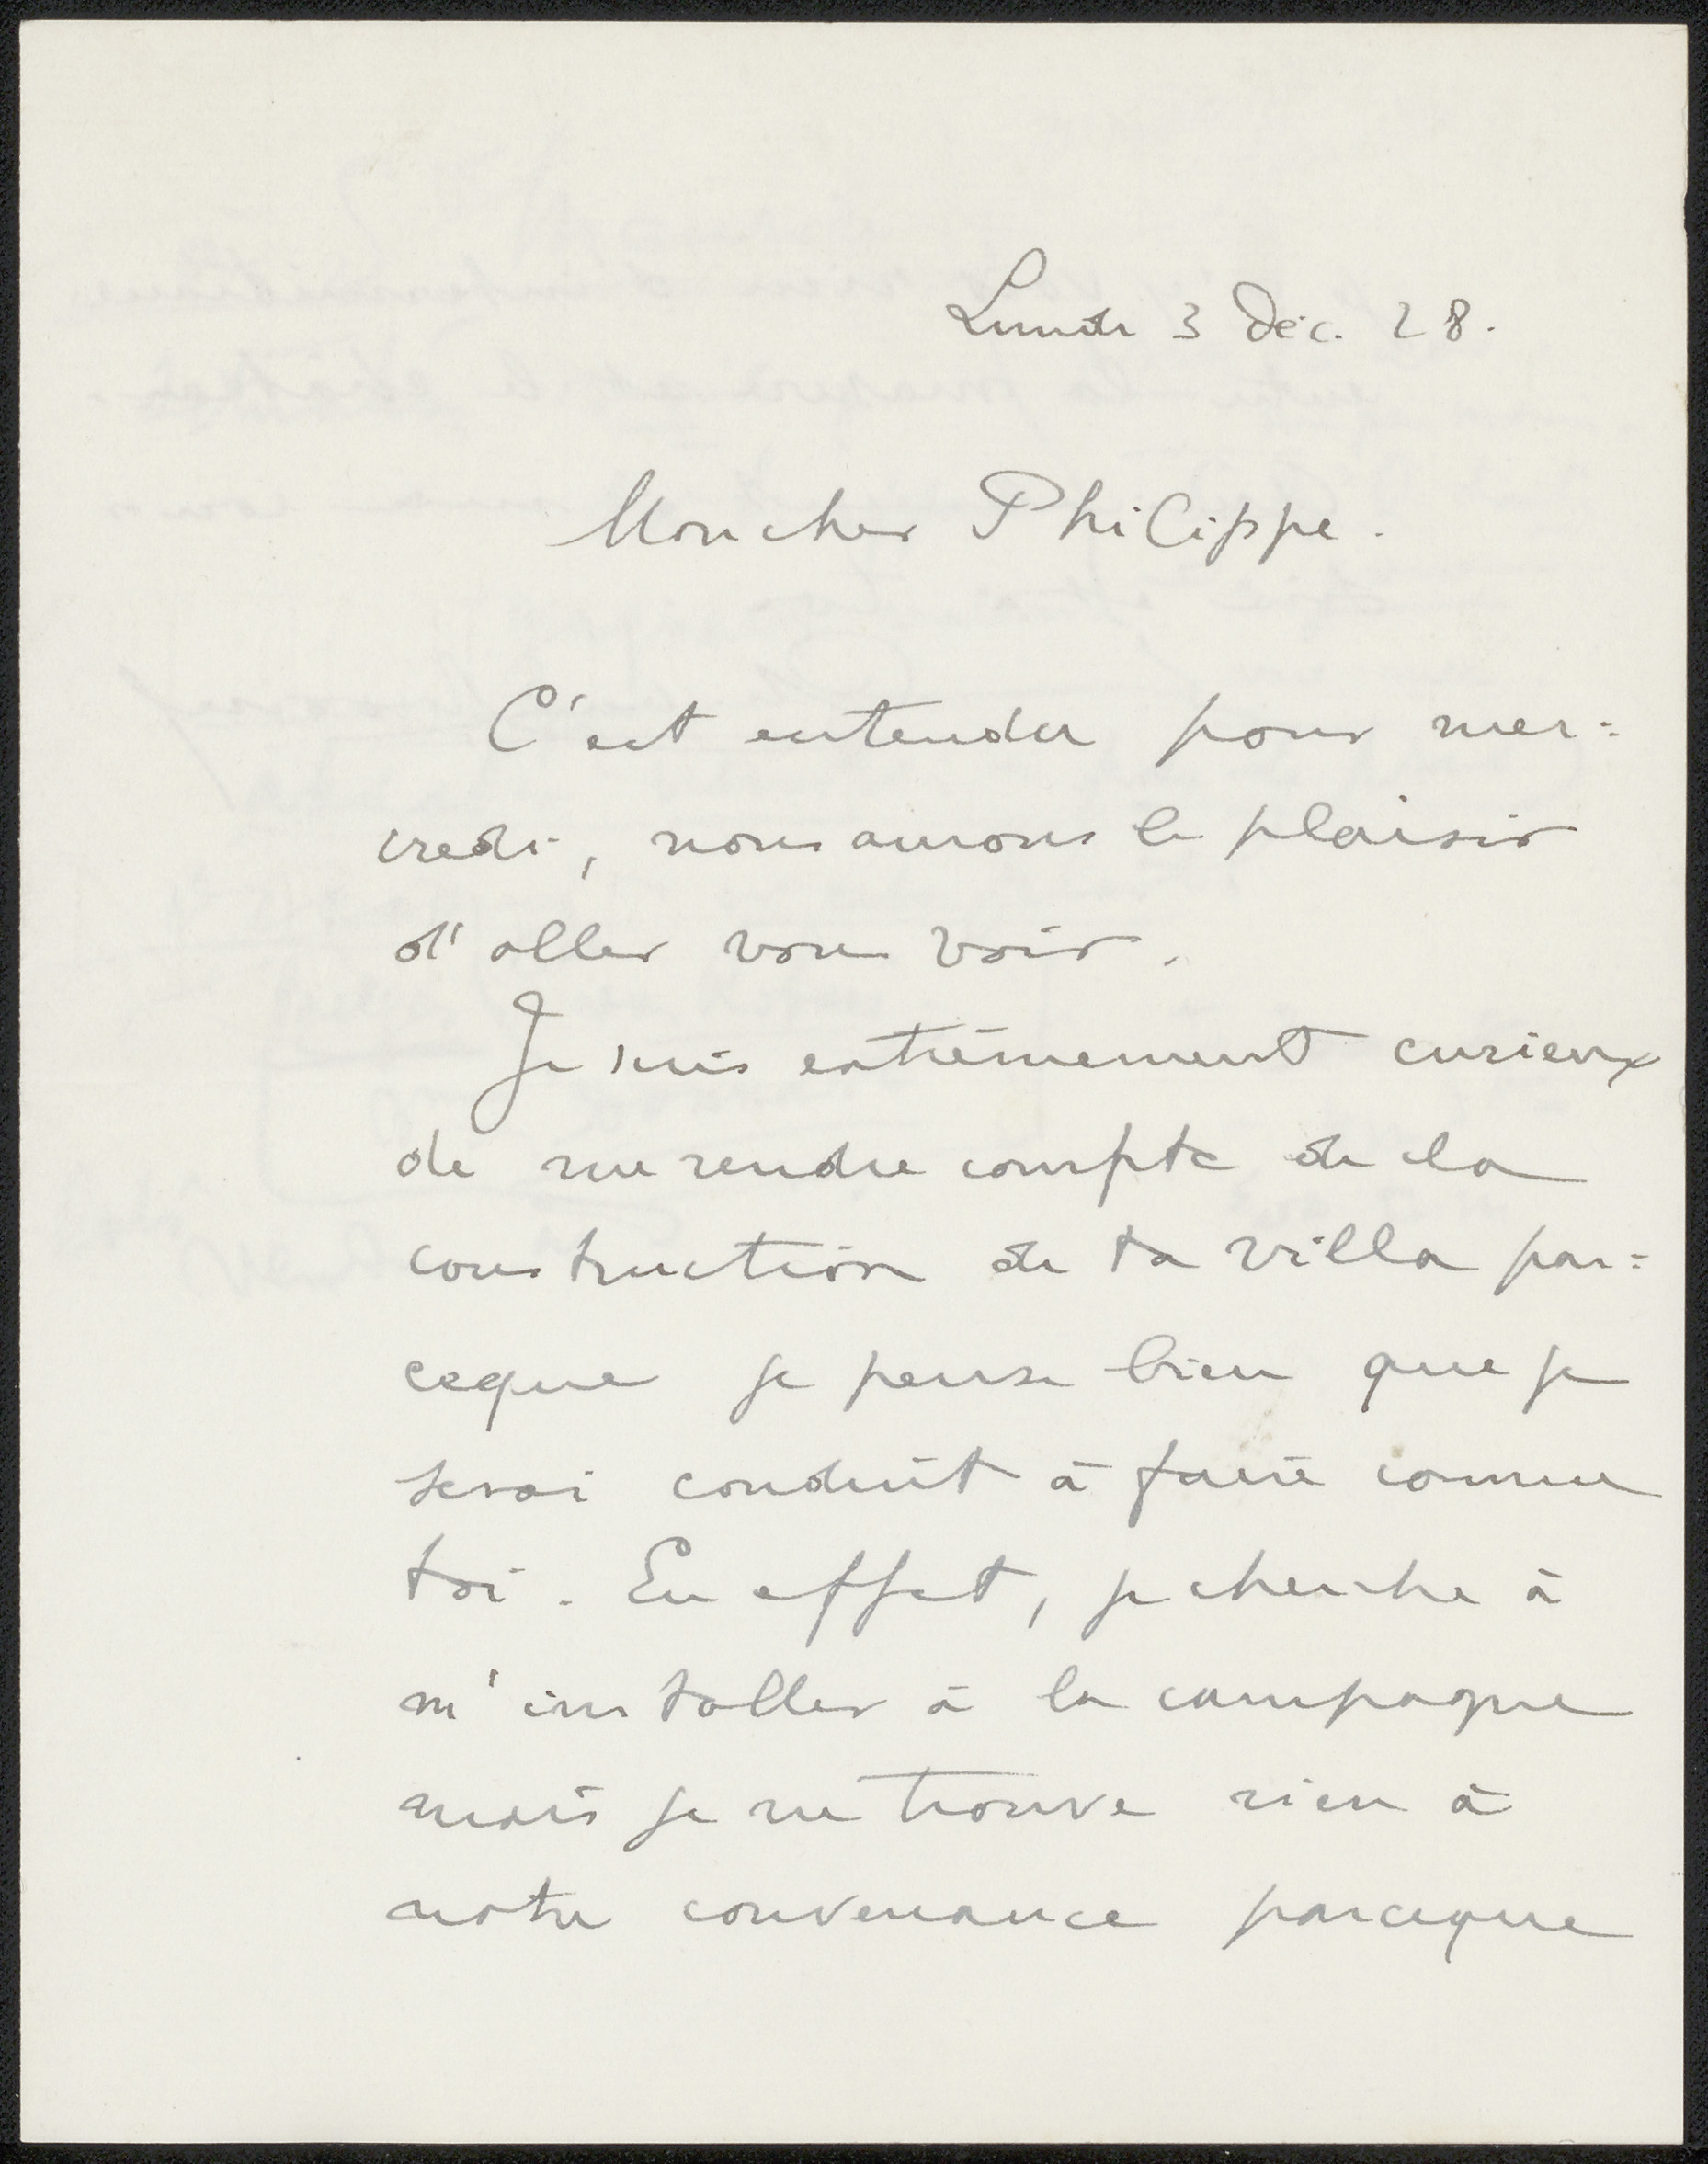 Lundi 3 Déc. 28.
Mon cher Philippe.
C'est entendu pour mer=
credi, nous aurons le plaisir
d'aller vous voir.
Je suis extrêmement curieux
de me rendre compte de la
construction de ta villa par=
ceque je pense bien que je
serai conduit à faire comme
toi. En effet, je cherche à
m'installer à la campagne
mais je ne trouve rien à
notre convenance parceque